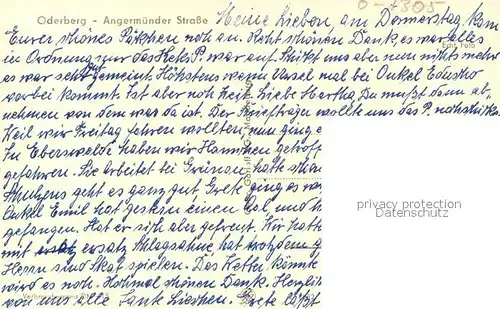 Oderberg - Angermünder Straße
0-1305
Meine Lieben, am Donnerstag kam
Eurer schönes Päkchen noch an. Recht schönen Dank, es war alles
in Ordnung, nur das P. war auf. Schikt uns aber nun nichts mehr
Echt Foto
es war sehr gut gemeint. Höchstens wenn Ursel mal bei Onkel
vorbei kommt. Ist aber noch Zeit. Liebe Martha, Du mußt dann ab,
nehmen von dem was da ist. Der Briefträger wollte uns das P. nachschik.
Weil wir Freitag fahren wollten, nun ging
In Eberswalde haben wir Hannchen getroff
gefahren. Sie arbeitet bei Grünau, hatte
Schulzens geht es ganz gut, Grete ging es
Onkel Emil hat gestern einen Aal, und
gefangen. Hat er sich aber gefreut. Wir hatte
mit ersatz Schlagsahne, hat trotzdem
Herrn sind Skat spielen. Das Wetter könnte
wird es noch. Nochmal schönen Dank. Herzlich
von uns alle Tante Lieschen. Grete läßt
privacy protection
Datenschutz